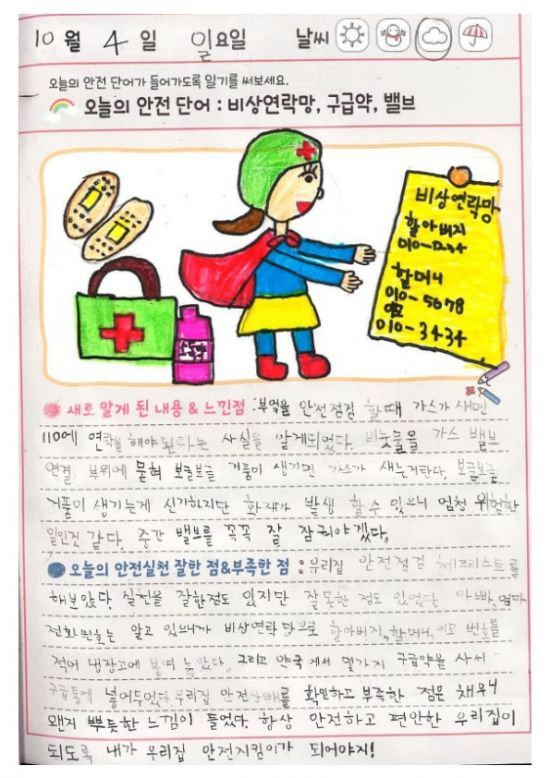 10 월 4 일 일요일 날씨
오늘의 안전 단어가 들어가도록 일기를 써보세요.
오늘의 안전 단어 : 비상연락망, 구급약, 밸브
비상연락망
할아버지
010-1234
할머니
010-5678
이모
010-3434
새로 알게 된 내용 & 느낀점 : 부엌을 안전점검 할때 가스가 새면
110에 연락을 해야 된다는 사실을 알게되었다. 비눗물을 가스 밸브
연결 부위에 묻혀 보글보글 거품이 생기면 가스가 새는거란다. 보글보글
거품이 생기는게 신기하지만 화재가 발생 할수 있으니 엄청 위험한
일인것 같다. 중간 밸브를 꼭꼭 잘 잠궈야겠다.
오늘의 안전실천 잘한 점&부족한 점 : 우리집 안전점검 체크리스트를
해보았다. 실천을 잘한점도 있지만 잘못한 점도 있었다. 아빠, 엄마
전화번호는 알고 있으니까 비상연락망으로 할아버지, 할머니, 이모 번호를
적어 냉장고에 붙여 놓았다. 그리고 약국에서 몇가지 구급약을 사서
구급통에 넣어두었다. 우리집 안전상태를 확인하고 부족한 점은 채우니
왠지 뿌듯한 느낌이 들었다. 항상 안전하고 편안한 우리집이
되도록 내가 우리집 안전지킴이가 되어야지!